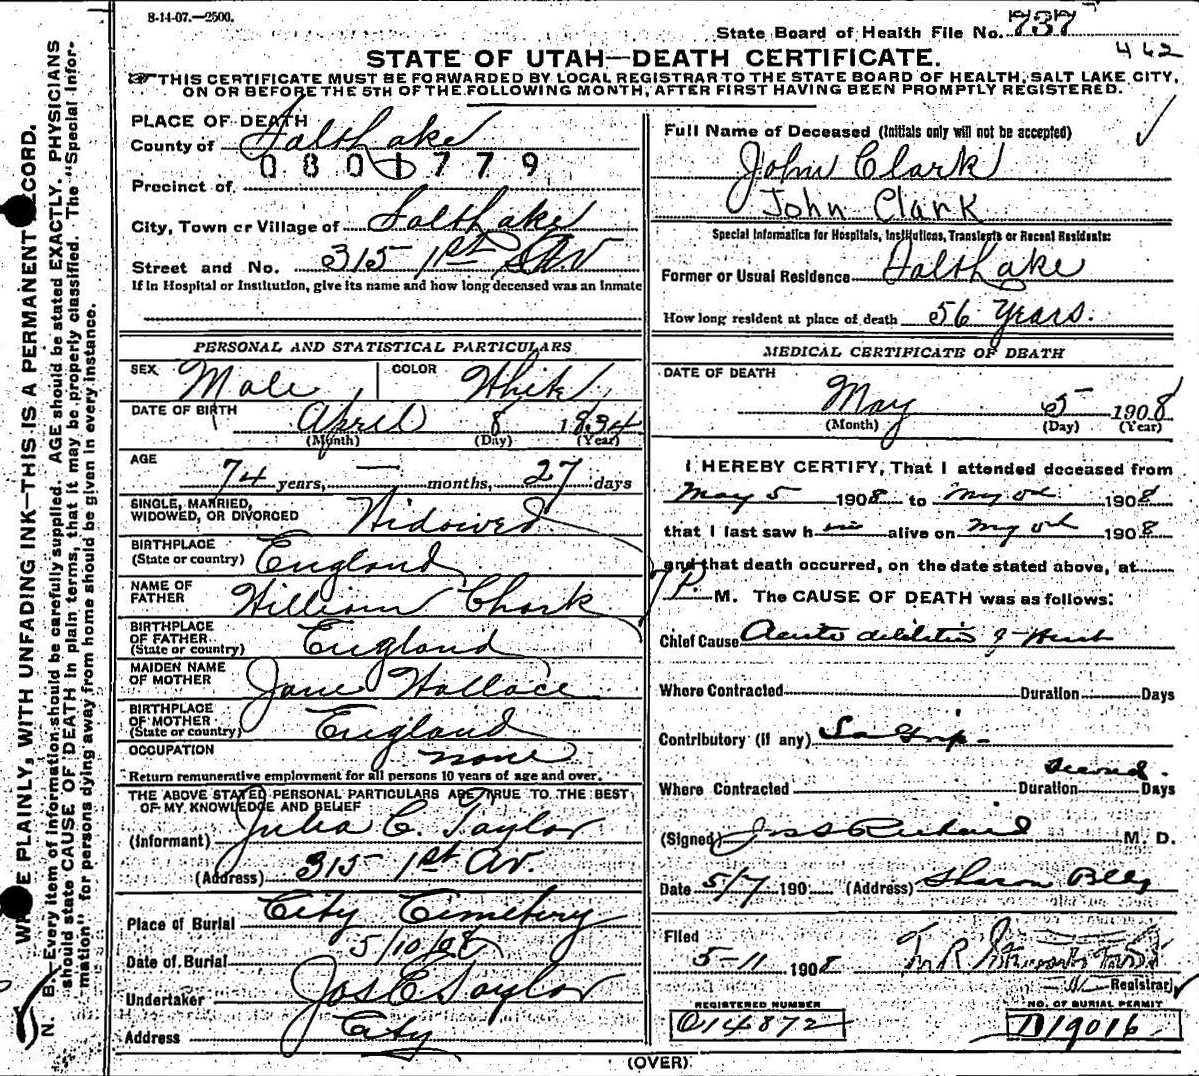 8-14-07.—2500.
State Board of Health File No. 737
462
STATE OF UTAH—DEATH CERTIFICATE.
THIS CERTIFICATE MUST BE FORWARDED BY LOCAL REGISTRAR TO THE STATE BOARD OF HEALTH, SALT LAKE CITY,
ON OR BEFORE THE 5TH OF THE FOLLOWING MONTH, AFTER FIRST HAVING BEEN PROMPTLY REGISTERED.
PLACE OF DEATH
County of Salt Lake
0801779
Precinct of
City, Town or Village of Salt Lake
Street and No. 315 1st Av
If in Hospital or Institution, give its name and how long deceased was an inmate
PERSONAL AND STATISTICAL PARTICULARS
SEX Male COLOR White
DATE OF BIRTH April 8 1834
(Month) (Day) (Year)
AGE
74 years, — months, 27 days
SINGLE, MARRIED,
WIDOWED, OR DIVORCED Widowed
BIRTHPLACE
(State or country) England
NAME OF
FATHER William Clark
BIRTHPLACE
OF FATHER
(State or country) England
MAIDEN NAME
OF MOTHER Jane Wallace
BIRTHPLACE
OF MOTHER
(State or country) England
OCCUPATION none
Return remunerative employment for all persons 10 years of age and over.
THE ABOVE STATED PERSONAL PARTICULARS ARE TRUE TO THE BEST
OF MY KNOWLEDGE AND BELIEF
(Informant) Julia C. Taylor
(Address) 315 1st Av.
Place of Burial City Cemetery
Date of Burial 5/10/08
Undertaker Jos E Taylor
Address City
Full Name of Deceased (Initials only will not be accepted)
John Clark
John Clark
Special Information for Hospitals, Institutions, Transients or Recent Residents:
Former or Usual Residence Salt Lake
How long resident at place of death 56 Years.
MEDICAL CERTIFICATE OF DEATH
DATE OF DEATH
May 5 1908
(Month) (Day) (Year)
I HEREBY CERTIFY, That I attended deceased from
May 5 1908 to 1908
that I last saw h alive on 1908
and that death occurred, on the date stated above, at
7 P. M. The CAUSE OF DEATH was as follows:
Chief Cause Acute dilitation of Heart
Where Contracted Duration Days
Contributory (if any) La Grip
Where Contracted Duration Days
(Signed) Jos S Richards M. D.
Date 5/7 190 (Address) Sharon Bldg
Filed
5-11 1908
Registrar
REGISTERED NUMBER
O14872
NO. OF BURIAL PERMIT
D19016
(OVER)
WRITE PLAINLY, WITH UNFADING INK—THIS IS A PERMANENT RECORD.
N. B. Every item of information should be carefully supplied. AGE should be stated EXACTLY. PHYSICIANS
should state CAUSE OF DEATH in plain terms, that it may be properly classified. The "Special Infor-
mation" for persons dying away from home should be given in every instance.